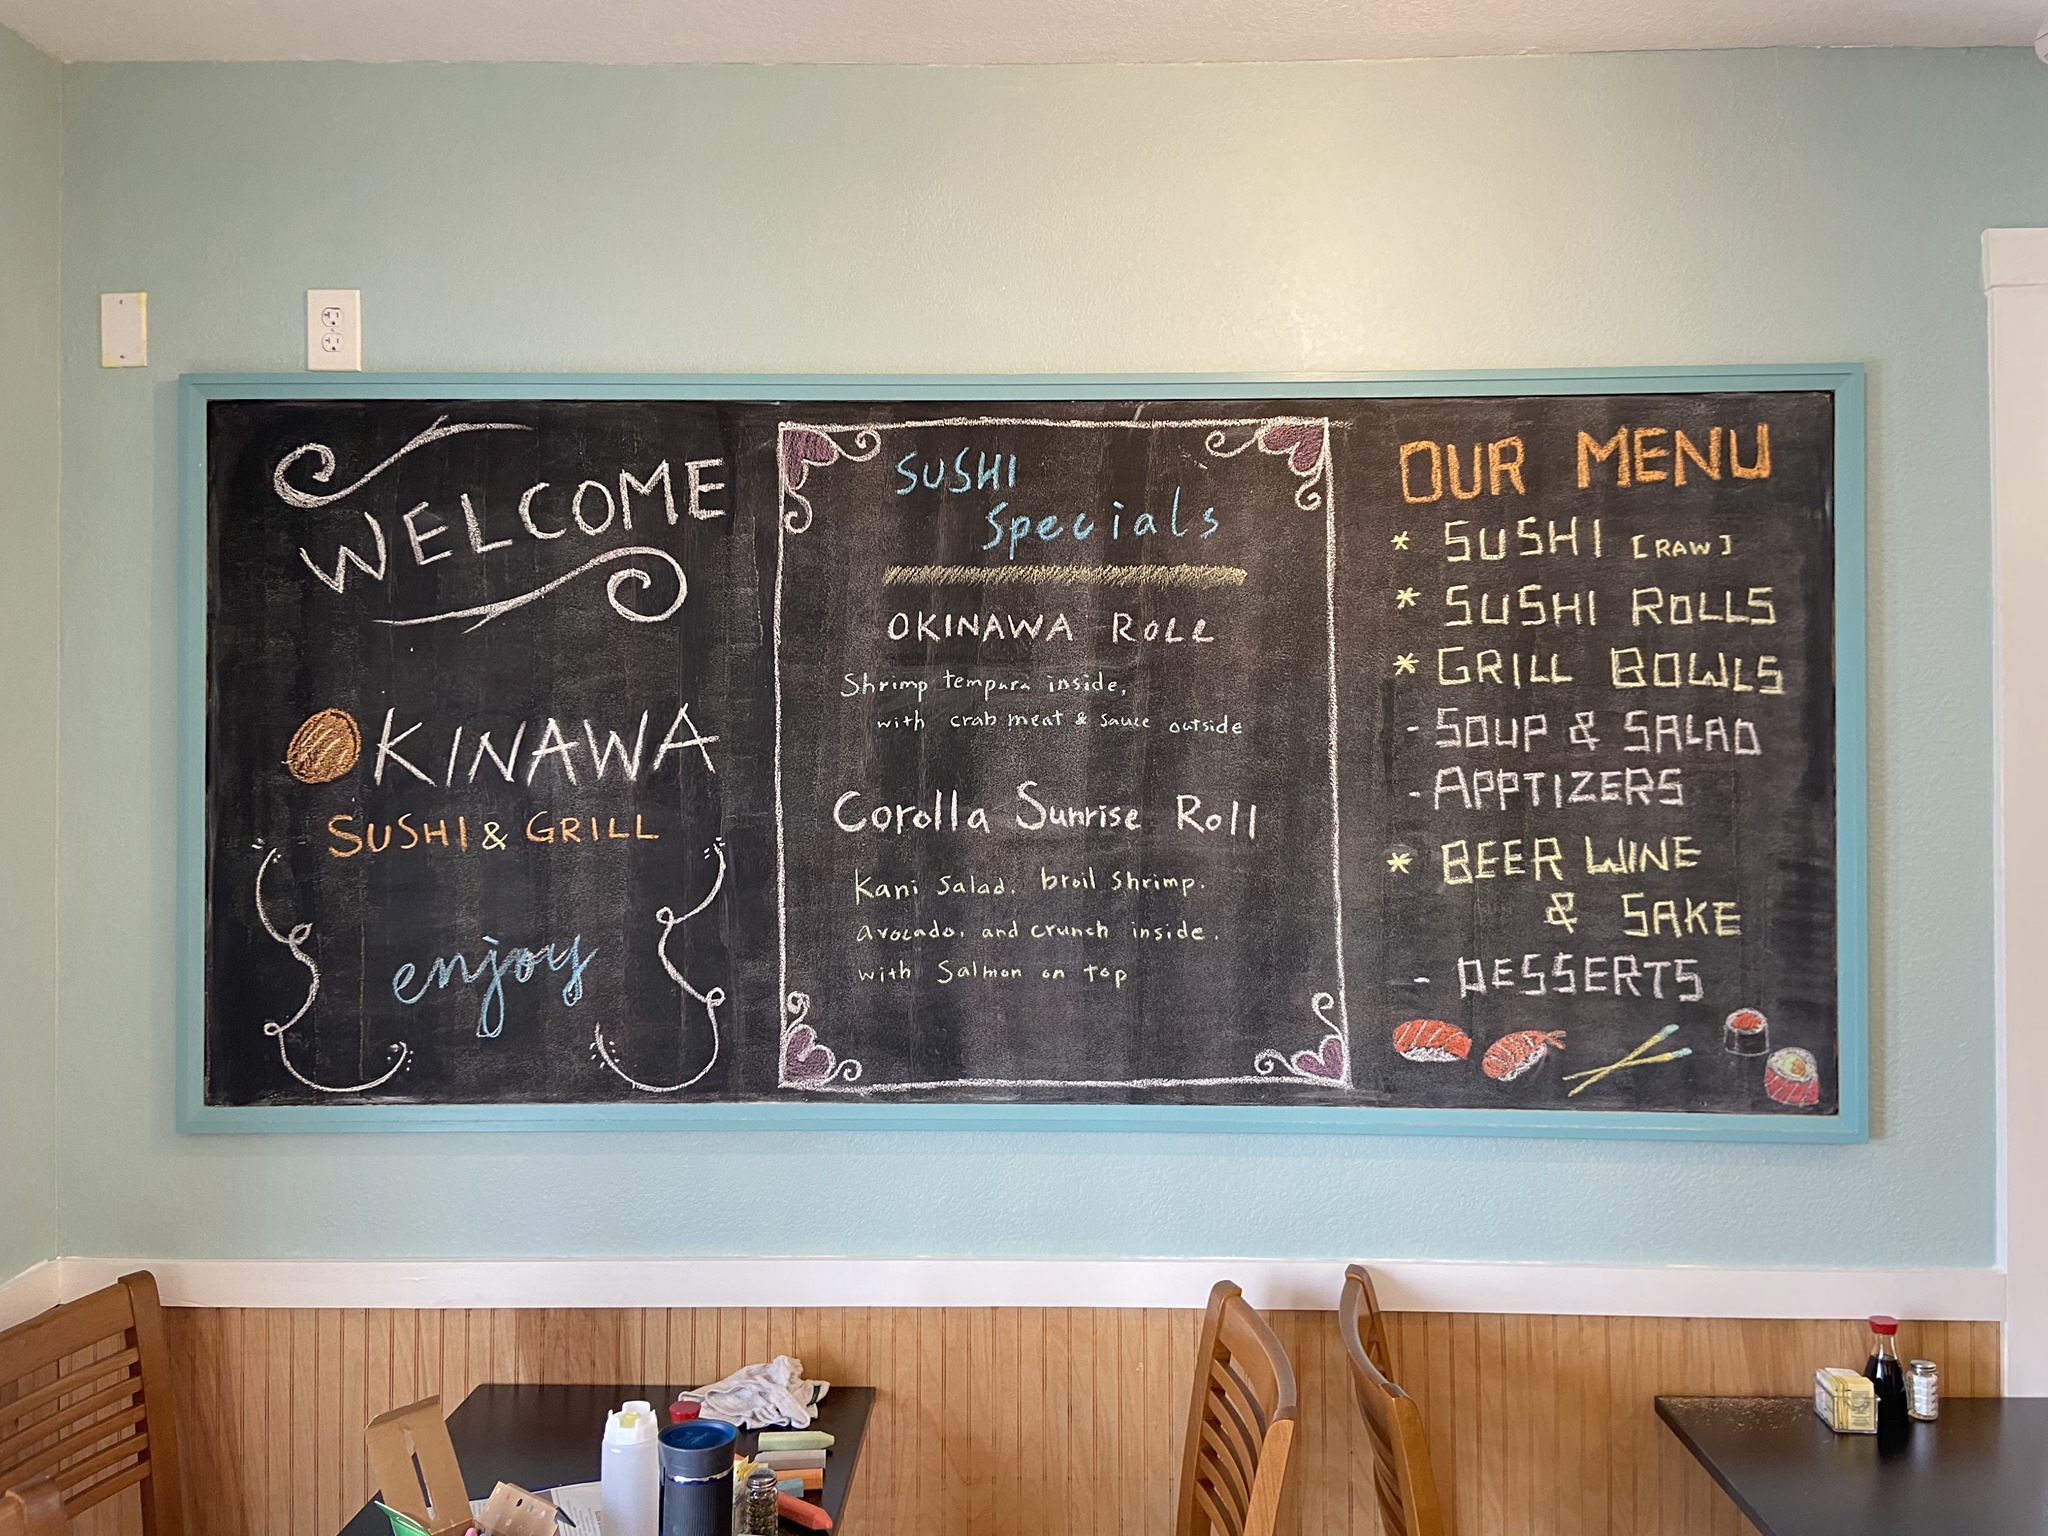 WELCOME
OKINAWA
SUSHI & GRILL
enjoy
SUSHI
Specials
OKINAWA ROLL
Shrimp tempura inside,
with crab meat & sauce outside
Corolla Sunrise Roll
Kani Salad. broil shrimp.
avocado. and crunch inside.
with Salmon on top
OUR MENU
* SUSHI [RAW]
* SUSHI ROLLS
* GRILL BOWLS
- SOUP & SALAD
- APPTIZERS
* BEER WINE
& SAKE
- DESSERTS